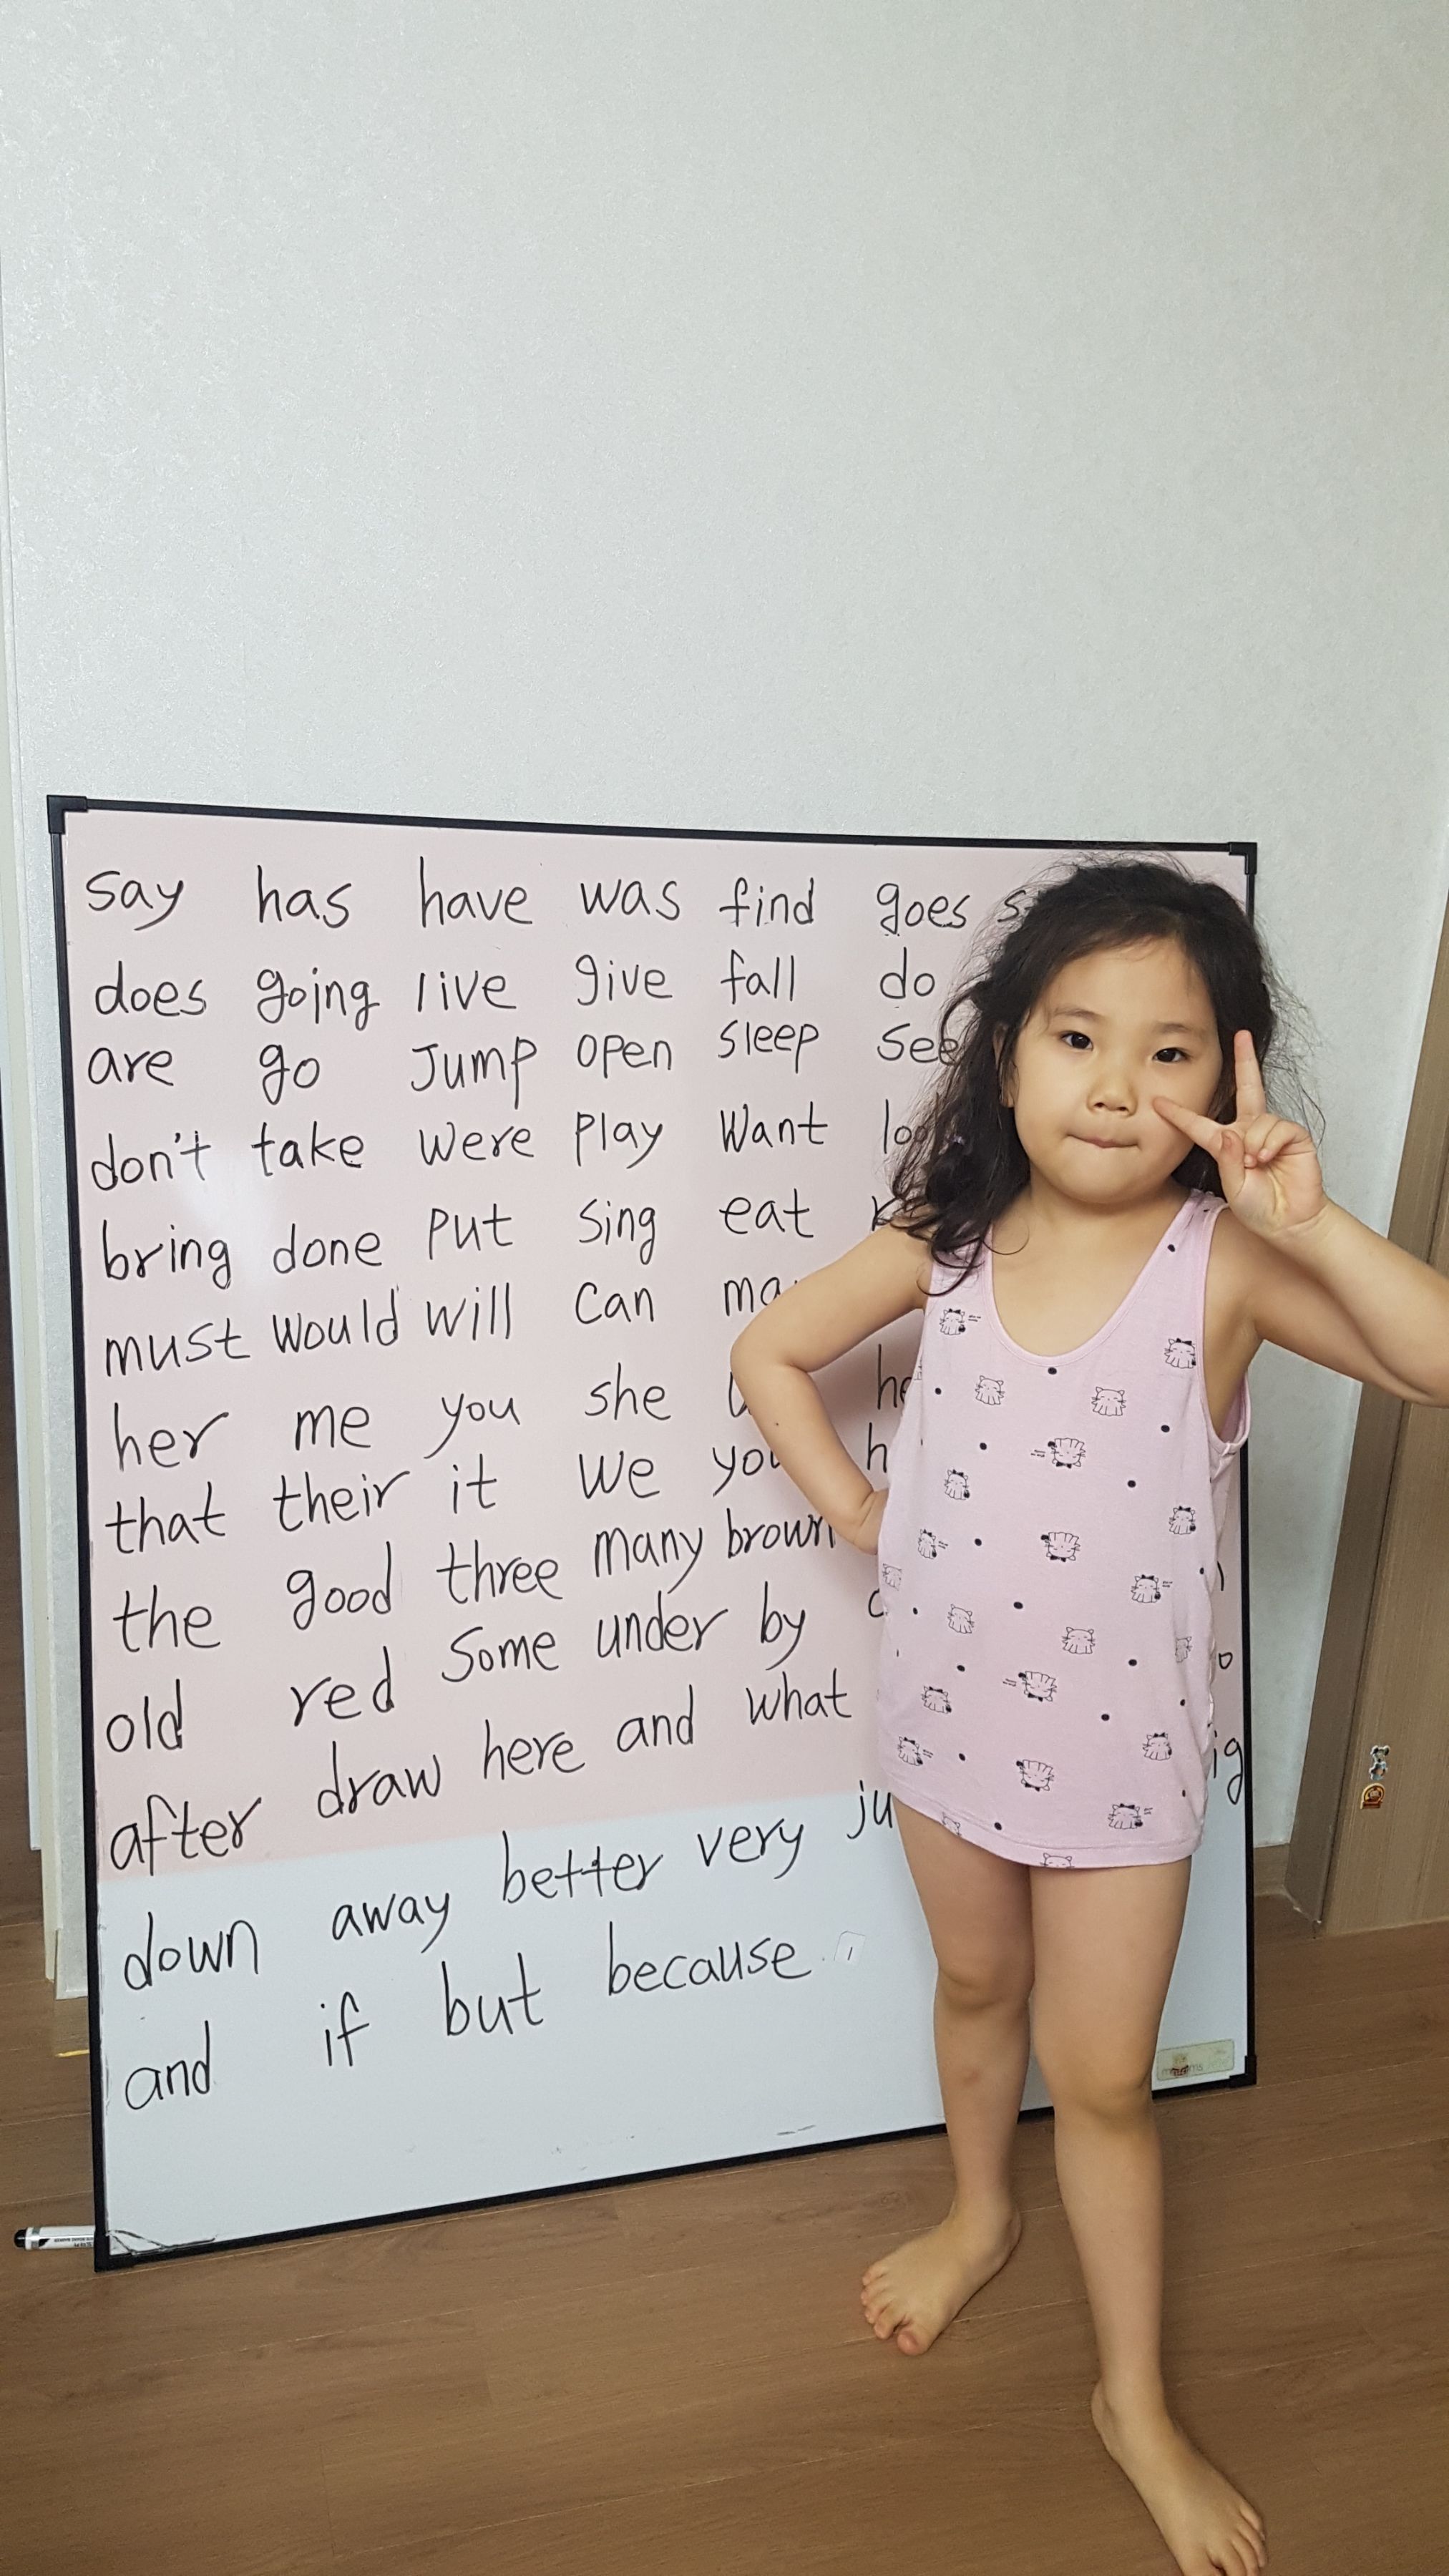 say has have was find goes
does going live give fall do
are go Jump open sleep see
don't take were play want
bring done put sing eat
must would will can
her me you she
that their it we
the good three many brown
old red some under by
after draw here and what
down away better very
and if but because